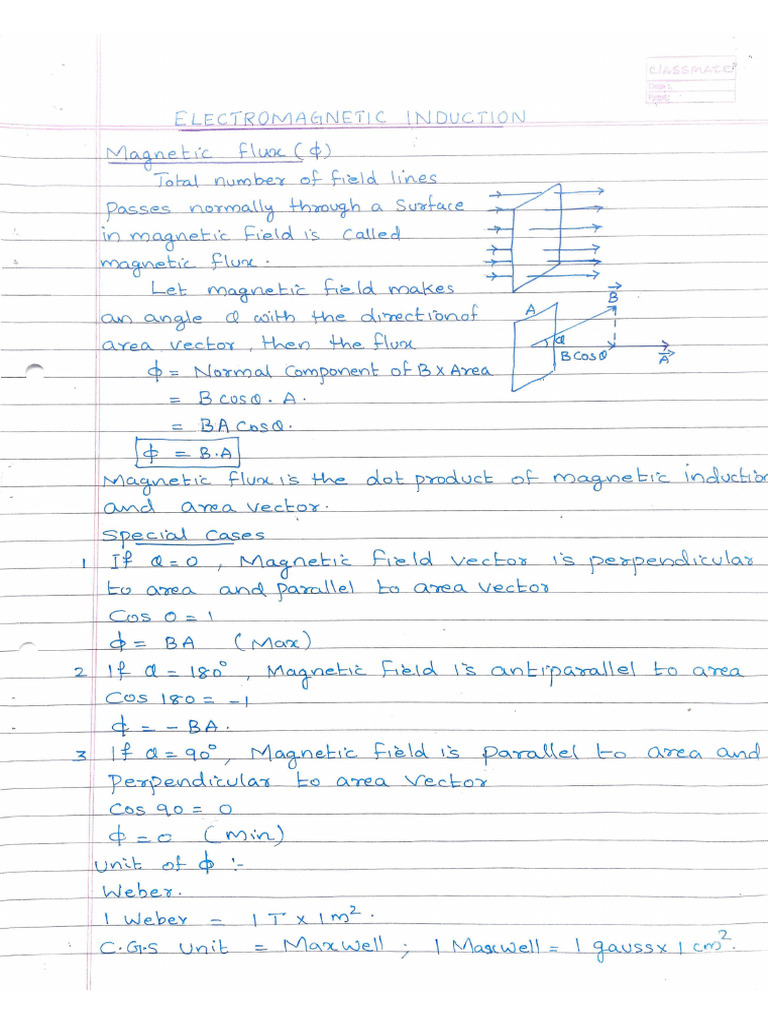 classmate
Date:
Page:
ELECTROMAGNETIC INDUCTION
Magnetic flux (ϕ)
Total number of field lines
passes normally through a Surface
in magnetic field is called
magnetic flux.
Let magnetic field makes
an angle θ with the direction of
area vector, then the flux
ϕ = Normal Component of B x Area
= B cosθ . A.
= BA Cosθ.
ϕ = B.A
A
B
θ
B cosθ
A
Magnetic flux is the dot product of magnetic induction
and area vector.
Special Cases
1 If θ = 0 , Magnetic field vector is perpendicular
to area and parallel to area vector
Cos 0 = 1
ϕ = BA (Max)
2 If θ = 180° , Magnetic Field is antiparallel to area
Cos 180 = -1
ϕ = - BA.
3 If θ = 90° , Magnetic field is parallel to area and
perpendicular to area vector
Cos 90 = 0
ϕ = 0 (min)
Unit of ϕ :-
Weber.
1 Weber = 1 T x 1 m².
C.G.S Unit = Maxwell ; 1 Maxwell = 1 gauss x 1 cm².